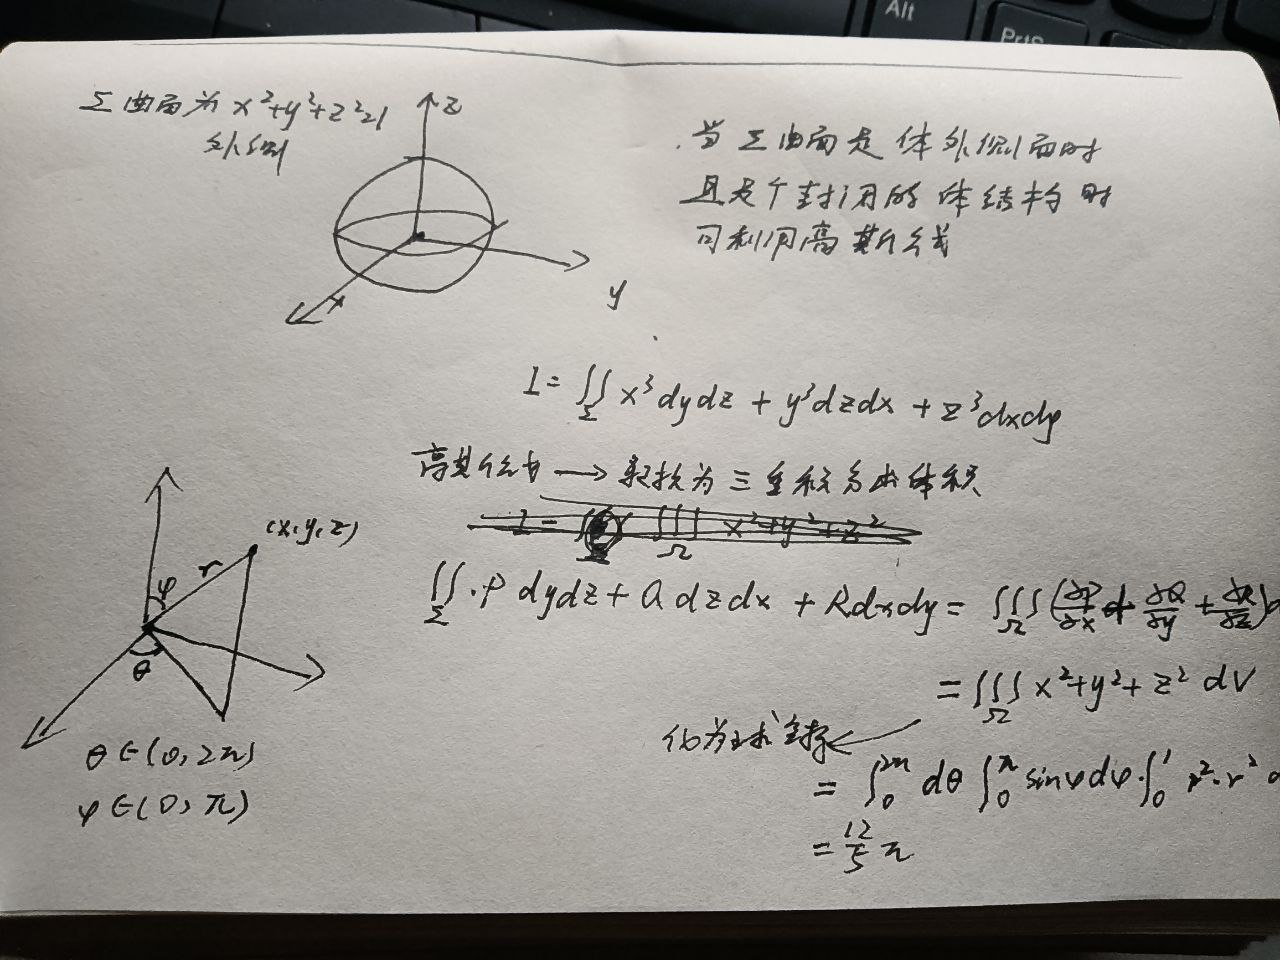 Alt
PrtS
Σ曲面为 x²+y²+z²=1
外侧
z
y
x
当Σ曲面是体外侧面时
且是个封闭的体结构时
可利用高斯公式
I = ∬_Σ x³dydz + y³dzdx + z³dxdy
高斯公式 → 转换为三重积分求体积
I = ∭_Ω x²+y²+z²
∬_Σ P dydz + Q dzdx + R dxdy = ∭_Ω (∂P/∂x + ∂Q/∂y + ∂R/∂z)
= ∭_Ω x²+y²+z² dV
化为球坐标
= ∫₀^{2π} dθ ∫₀^π sinφdφ·∫₀¹ r²·r²
= 12/5 π
(x,y,z)
r
φ
θ
θ∈(0,2π)
φ∈(0,π)